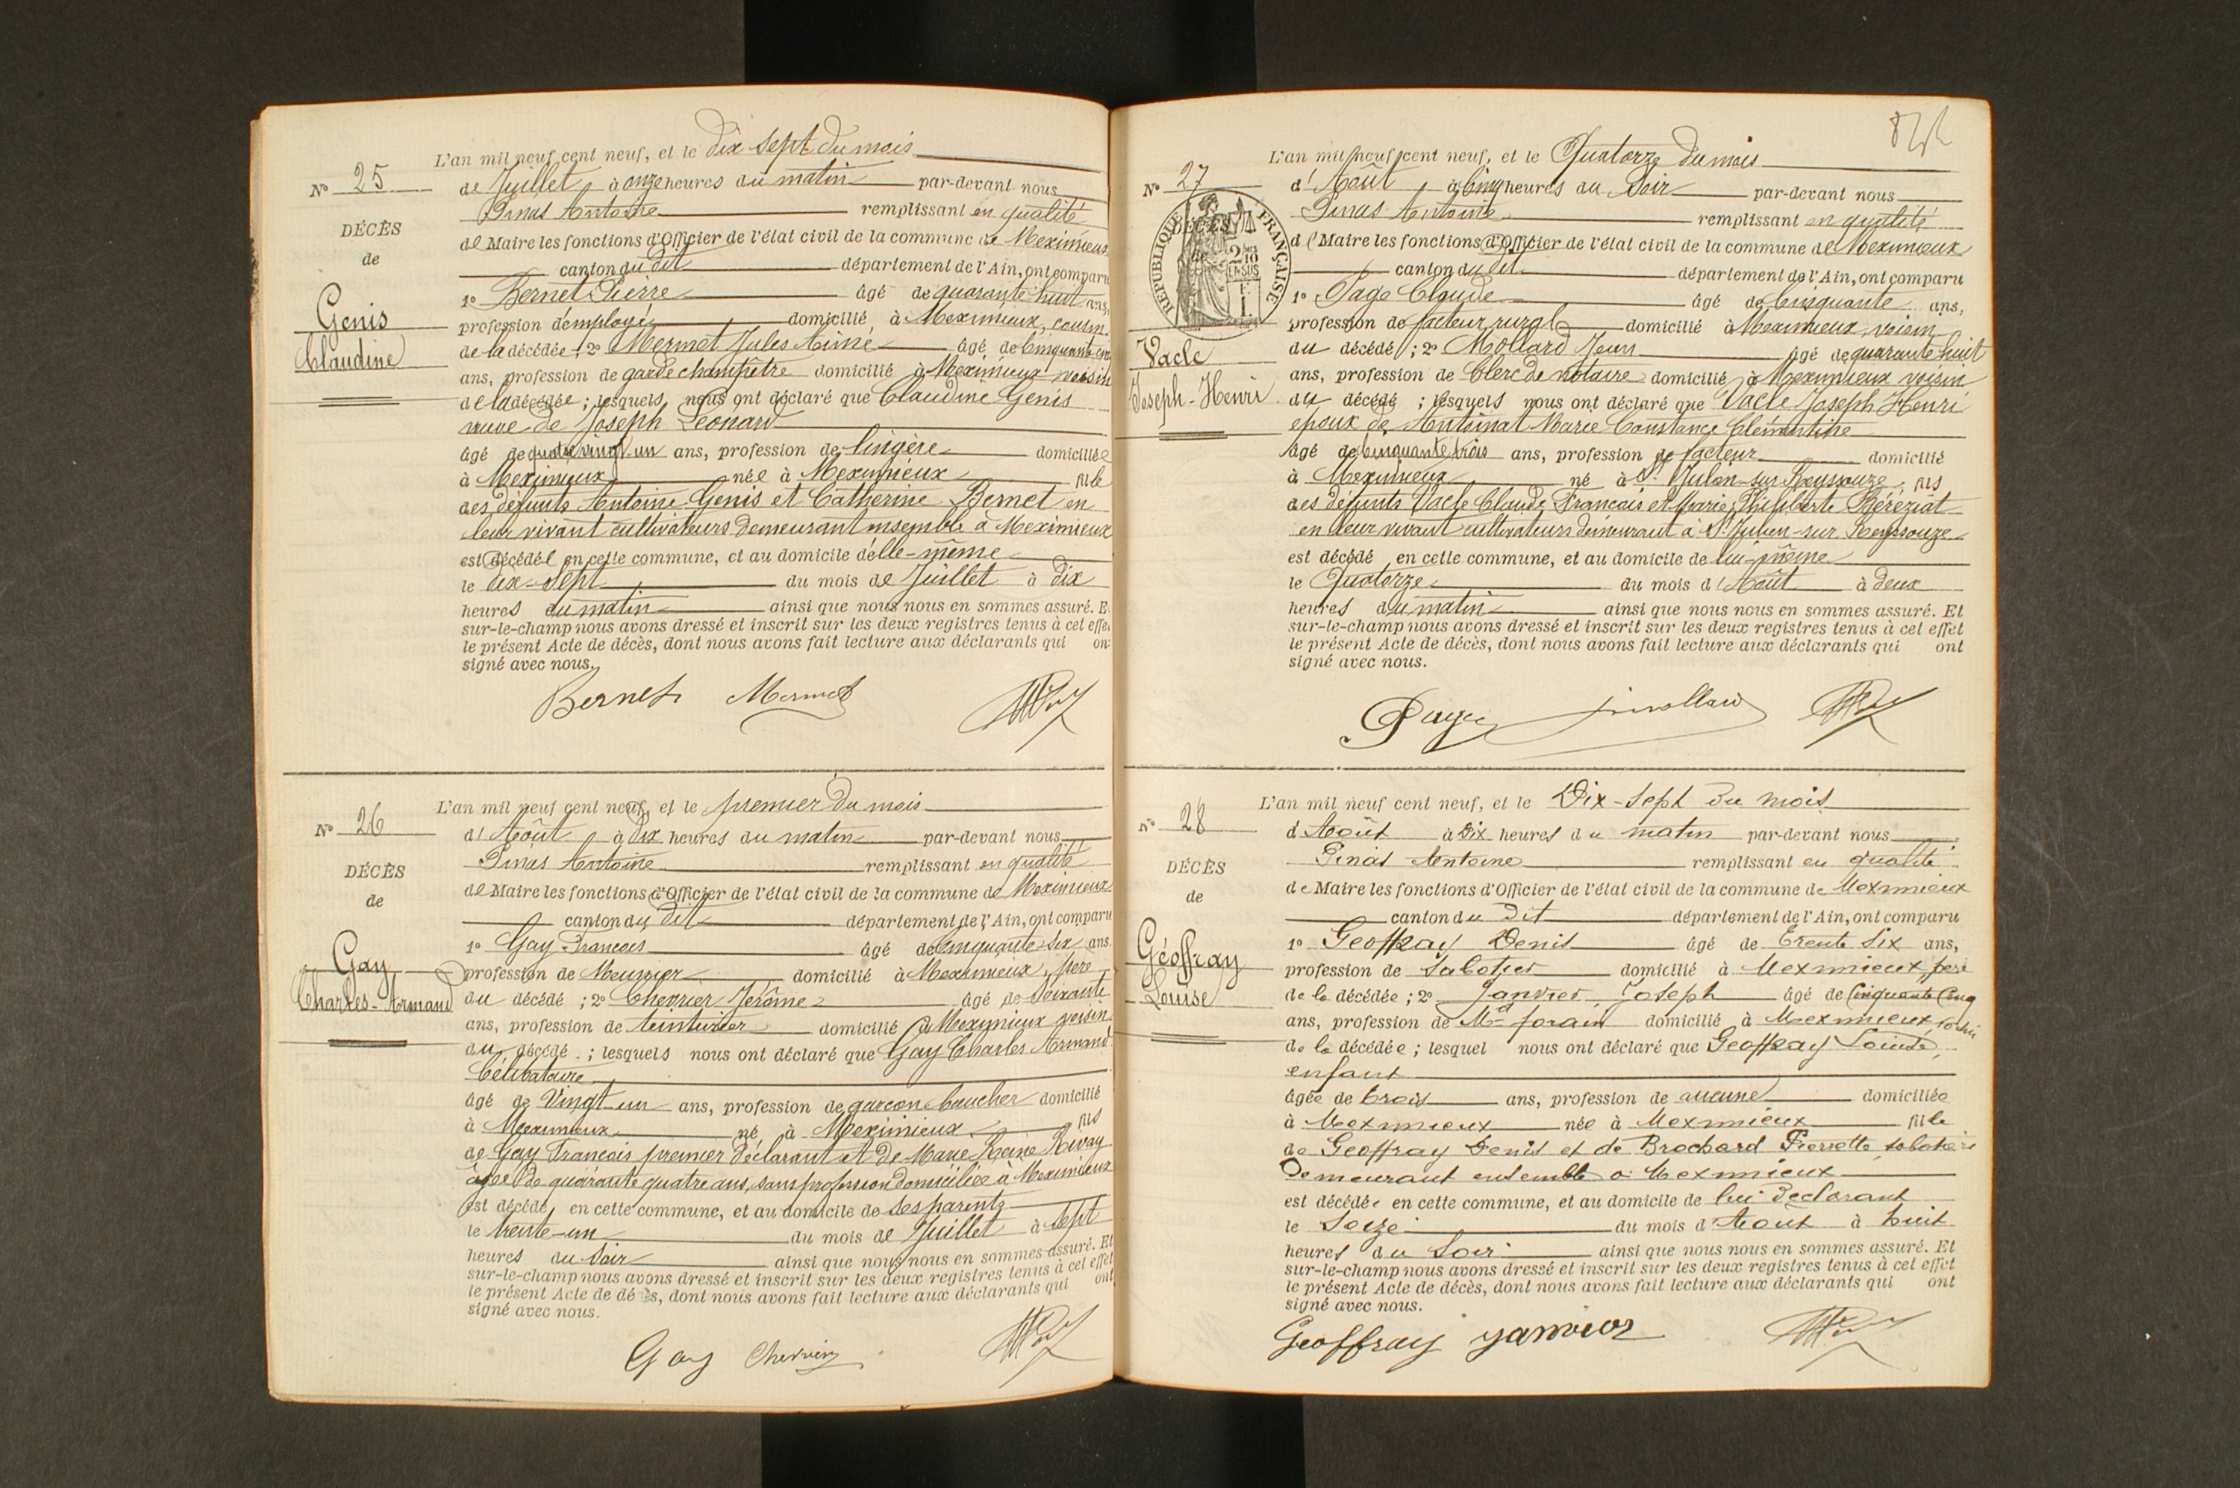 L'an mil neuf cent neuf, et le dix sept du mois
N° 25
de Juillet à onze heures du matin par-devant nous
Pinas Antoine remplissant en qualité
DÉCÈS
de Maire les fonctions d'Officier de l'état civil de la commune de Meximieux
de
canton du dit département de l'Ain, ont comparu
1° Bernet Pierre âgé de quarante huit ans,
Genis
profession d'employé domicilié à Meximieux, cousin
Claudine
de la décédée ; 2° Mermet Jules Aimé âgé de cinquante cinq
ans, profession de garde champêtre domicilié à Meximieux voisin
de la décédée ; lesquels nous ont déclaré que Claudine Genis
veuve de Joseph Léonard
âgé de quatre vingt un ans, profession de lingère domiciliée
à Meximieux née à Meximieux fille
des défunts Antoine Genis et Catherine Bernet en
leur vivant cultivateurs demeurant ensemble à Meximieux
est décédée en cette commune, et au domicile d'elle-même
le dix-sept du mois de Juillet à dix
heures du matin ainsi que nous nous en sommes assuré. E
sur-le-champ nous avons dressé et inscrit sur les deux registres tenus à cet effe
le présent Acte de décès, dont nous avons fait lecture aux déclarants qui on
signé avec nous.
Bernet Mermet
L'an mil neuf cent neuf, et le premier du mois
N° 26
d'Août à dix heures du matin par-devant nous
Pinas Antoine remplissant en qualité
DÉCÈS
de Maire les fonctions d'Officier de l'état civil de la commune de Meximieux
de
canton du dit département de l'Ain, ont comparu
1° Gay Francois âgé de cinquante-six ans
Gay
profession de Meunier domicilié à Meximieux, père
Charles-Armand
du décédé ; 2° Chevrier Jérôme âgé de soixante
ans, profession de teinturier domicilié à Meximieux voisin
du décédé ; lesquels nous ont déclaré que Gay Charles Armand
Célibataire
âgé de Vingt-un ans, profession de garçon boucher domicilié
à Meximieux né à Meximieux fils
de Gay Francois premier déclarant et de Marie Reine Rivay
âgée de quarante quatre ans, sans profession domiciliée à Meximieux
est décédé en cette commune, et au domicile de ses parents
le trente-un du mois de Juillet à sept
heures du soir ainsi que nous nous en sommes assuré. Et
sur-le-champ nous avons dressé et inscrit sur les deux registres tenus à cet effet
le présent Acte de décès, dont nous avons fait lecture aux déclarants qui ont
signé avec nous.
Gay Chevrier
L'an mil neuf cent neuf, et le Quatorze du mois
N° 27
d'Août à Cinq heures du Soir par-devant nous
Pinas Antoine remplissant en qualité
DÉCÈS
RÉPUBLIQUE FRANÇAISE
2/10 EN SUS
de Maire les fonctions d'Officier de l'état civil de la commune de Meximieux
canton du dit département de l'Ain, ont comparu
1° Page Claude âgé de Cinquante ans,
profession de facteur rural domicilié à Meximieux, voisin
Vacle
du décédé ; 2° Mollard Jean âgé de quarante huit
ans, profession de Clerc de notaire domicilié à Meximieux voisin
Joseph-Henri
du décédé ; lesquels nous ont déclaré que Vacle Joseph Henri
époux de Antoinat Marie Constance Clémentine
âgé de cinquante trois ans, profession de facteur domicilié
à Meximieux né à St Julien-sur Reyssouze fils
des défunts Vacle Claude Francois et Marie Philiberte Béréziat
en leur vivant cultivateurs demeurant à St Julien-sur Reyssouze
est décédé en cette commune, et au domicile de lui-même
le Quatorze du mois d'Août à deux
heures du matin ainsi que nous nous en sommes assuré. Et
sur-le-champ nous avons dressé et inscrit sur les deux registres tenus à cet effet
le présent Acte de décès, dont nous avons fait lecture aux déclarants qui ont
signé avec nous.
Page Jmollard
L'an mil neuf cent neuf, et le Dix-Sept du mois
N° 28
d'Août à Dix heures du matin par-devant nous
Pinas Antoine remplissant en qualité
DÉCÈS
de Maire les fonctions d'Officier de l'état civil de la commune de Meximieux
de
canton du dit département de l'Ain, ont comparu
1° Geoffray Denis âgé de Trente Six ans,
Géoffray
profession de Sabotier domicilié à Meximieux, père
Louise
de la décédée ; 2° Janvier Joseph âgé de Cinquante Cinq
ans, profession de Md forain domicilié à Meximieux
de la décédée ; lesquel nous ont déclaré que Geoffray Louise,
enfant
âgée de trois ans, profession de aucune domiciliée
à Meximieux née à Meximieux fille
de Geoffray Denis et de Brochard Pierrette sabotiers
Demeurant ensemble à Meximieux
est décédée en cette commune, et au domicile de lui Déclarant
le Seize du mois d'Août à huit
heures du Soir ainsi que nous nous en sommes assuré. Et
sur-le-champ nous avons dressé et inscrit sur les deux registres tenus à cet effet
le présent Acte de décès, dont nous avons fait lecture aux déclarants qui ont
signé avec nous.
Geoffray Janvier